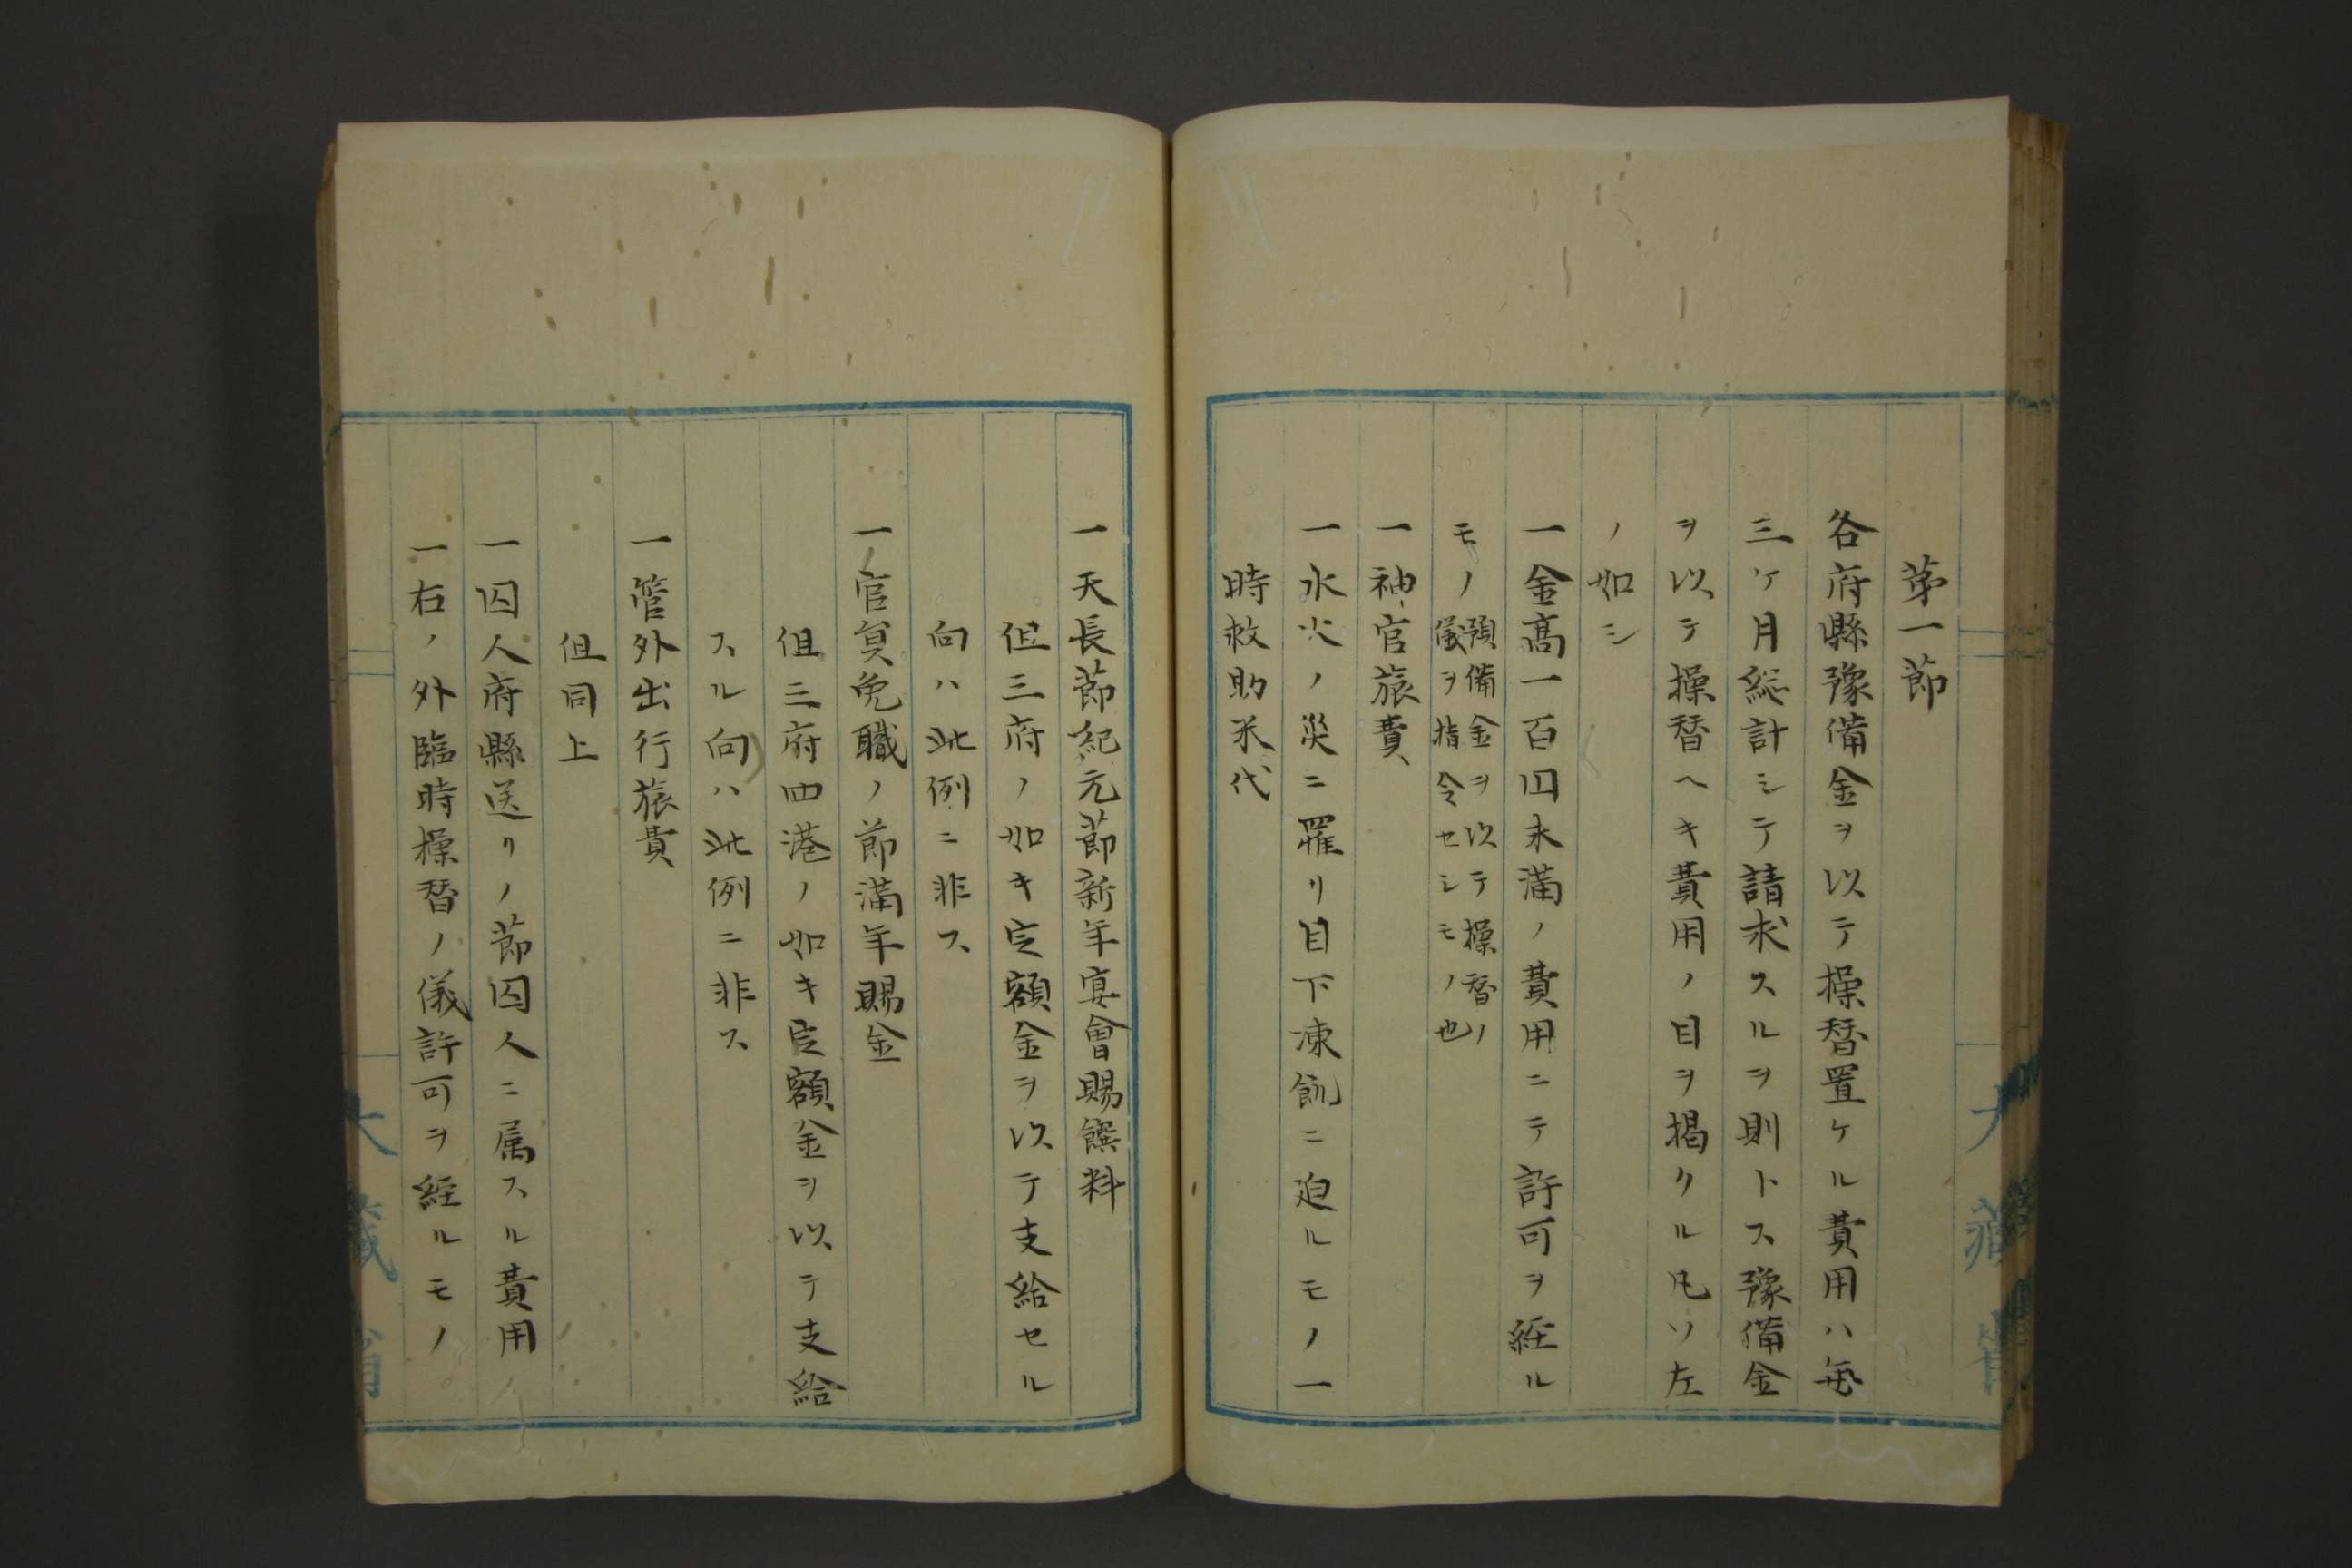 第一節
各府縣豫備金ヲ以テ操替置ケル費用ハ毎
三ケ月総計シテ請求スルヲ則トス豫備金
ヲ以テ操替ヘキ費用ノ目ヲ掲クル凡ソ左
ノ如シ
一金高一百囚未満ノ費用ニテ許可ヲ経ル
モノ預備金ヲ以テ操替ノ
儀ヲ指令セシモノ也
一神官旅費
一水火ノ災ニ罹リ目下凍飢ニ迫ルモノ一
時救助米代
一天長節紀元節新年宴會賜饌料
但三府ノ如キ定額金ヲ以テ支給セル
向ハ此例ニ非ス
一官員免職ノ節満年賜金
但三府四港ノ如キ定額金ヲ以テ支給
スル向ハ此例ニ非ス
一管外出行旅費
但同上
一囚人府縣送リノ節囚人ニ属スル費用
一右ノ外臨時操替ノ儀許可ヲ経ルモノ
大藏省